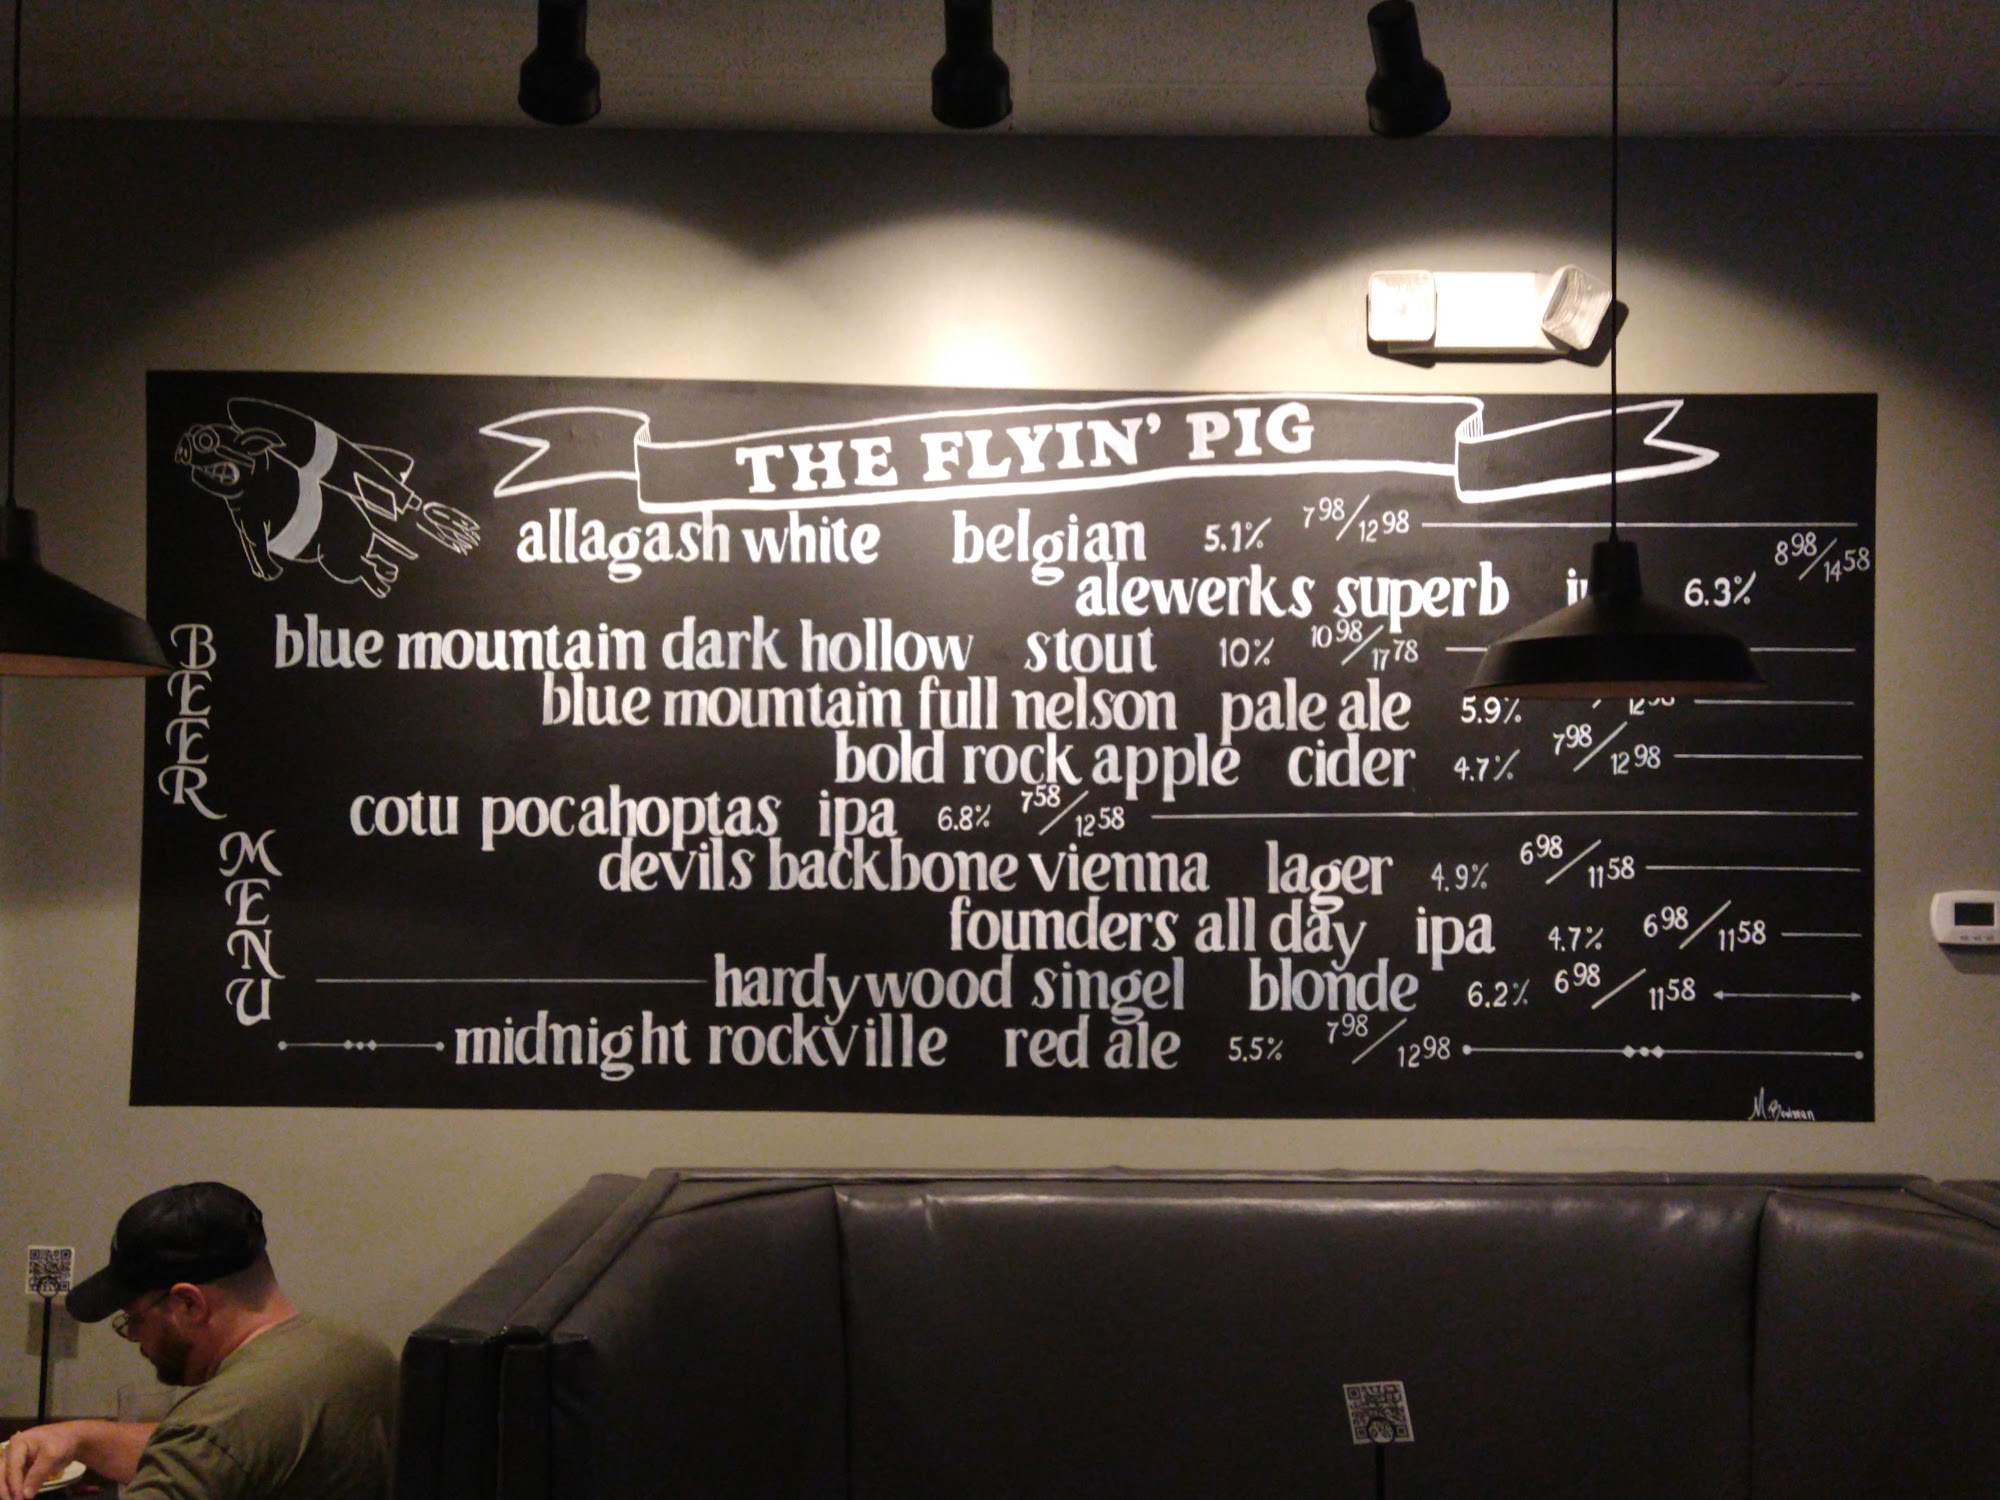 THE FLYIN' PIG
BEER
MENU
allagash white belgian 5.1% 7 98/12 98
alewerks superb 6.3% 8 98/14 58
blue mountain dark hollow stout 10% 10 98/17 78
blue mountain full nelson pale ale 5.9%
bold rock apple cider 4.7% 7 98/12 98
cotu pocahoptas ipa 6.8% 7 58/12 58
devils backbone vienna lager 4.9% 6 98/11 58
founders all day ipa 4.7% 6 98/11 58
hardywood singel blonde 6.2% 6 98/11 58
midnight rockville red ale 5.5% 7 98/12 98
M. Bowman